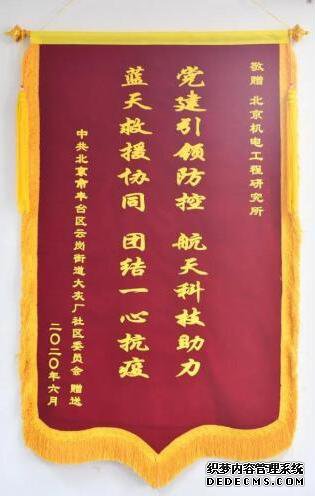 敬赠 北京机电工程研究所
党建引领防控 航天科技助力
蓝天救援协同 团结一心抗疫
中共北京市丰台区云岗街道大灰厂社区委员会 赠送
二〇二〇年六月
织梦内容管理系统
DEDECMS.COM